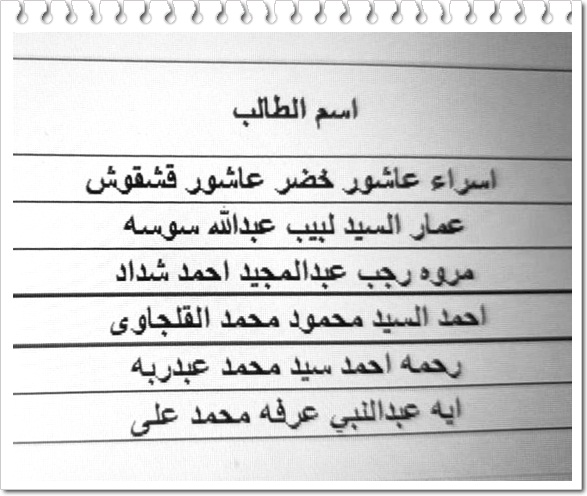 اسم الطالب
اسراء عاشور خضر عاشور قشقوش
عمار السيد لبيب عبدالله سوسه
مروه رجب عبدالمجيد احمد شداد
احمد السيد محمود محمد القلجاوى
رحمه احمد سيد محمد عبدربه
ايه عبدالنبي عرفه محمد على